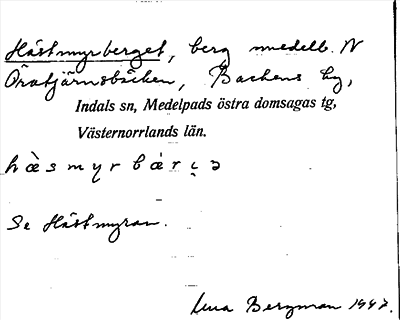 Hästmyrberget, berg omedelb. N
Öratjärnsbäcken, Backens by,
Indals sn, Medelpads östra domsagas tg,
Västernorrlands län.
hàsmyrbár
Se Hästmyran.
Lena Bergman 1992.